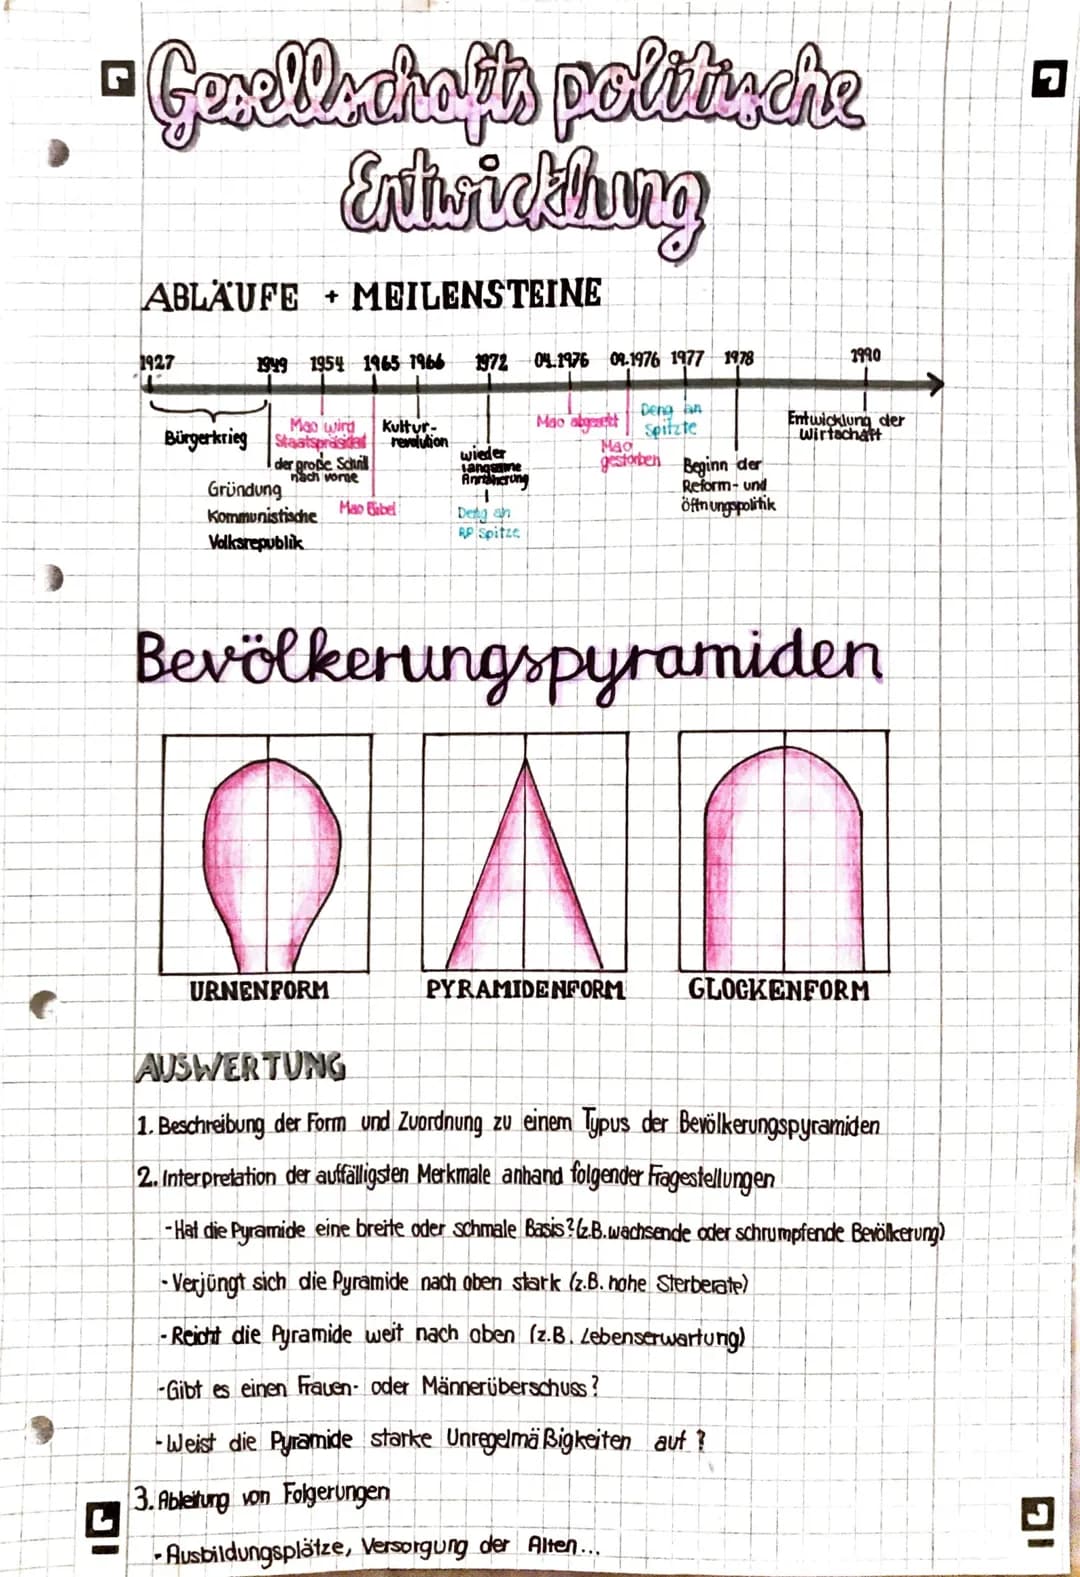 Gesellschafts politische
Entwicklung
ABLÄUFE + MEILENSTEINE
1927 1949 1954 1965 1966 1972 04.1976 09.1976 1977 1978 1990
Bürgerkrieg
Gründung
Kommunistische
Volksrepublik
Mao wird
Staatspräsident
der große Schritt
nach vorne
Mao Bibel
Kultur-
revolution
wieder
langsame
Annäherung
Deng an
RP Spitze
Mao abgesetzt
Mao
gestorben
Deng an
Spitzte
Beginn der
Reform- und
Öffnungspolitik
Entwicklung der
Wirtschaft
Bevölkerungspyramiden
URNENFORM PYRAMIDENFORM GLOCKENFORM
AUSWERTUNG
1. Beschreibung der Form und Zuordnung zu einem Typus der Bevölkerungspyramiden
2. Interpretation der auffälligsten Merkmale anhand folgender Fragestellungen
- Hat die Pyramide eine breite oder schmale Basis? (z.B. wachsende oder schrumpfende Bevölkerung)
- Verjüngt sich die Pyramide nach oben stark (z.B. hohe Sterberate)
- Reicht die Pyramide weit nach oben (z.B. Lebenserwartung)
- Gibt es einen Frauen- oder Männerüberschuss?
- Weist die Pyramide starke Unregelmäßigkeiten auf?
3. Ableitung von Folgerungen
- Ausbildungsplätze, Versorgung der Alten...